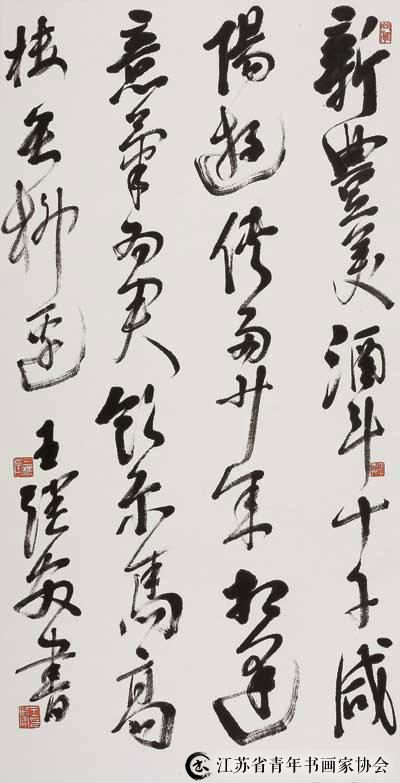 新豐美酒斗十千咸
陽遊俠多少年相逢
意氣為君飲系馬高
楼垂柳邊 王 書
江苏省青年书画家协会